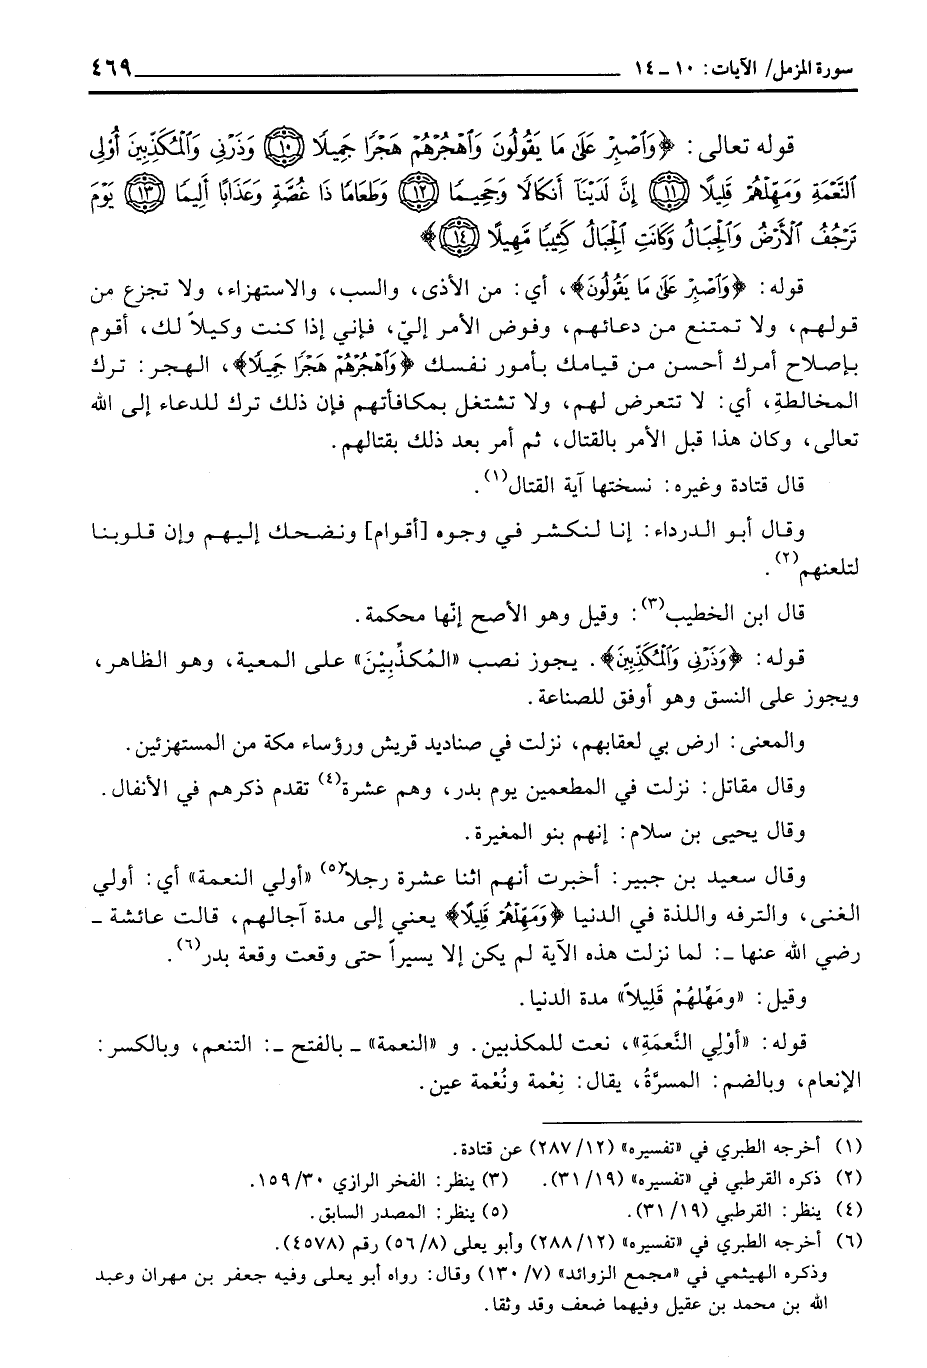 سورة المزمل/ الآيات: ١٠ ـ ١٤ ٤٦٩
قوله تعالى: ﴿وَٱصۡبِرۡ عَلَىٰ مَا يَقُولُونَ وَٱهۡجُرۡهُمۡ هَجۡرٗا جَمِيلٗا ١٠ وَذَرۡنِي وَٱلۡمُكَذِّبِينَ أُوْلِي
ٱلنَّعۡمَةِ وَمَهِّلۡهُمۡ قَلِيلًا ١١ إِنَّ لَدَيۡنَآ أَنكَالٗا وَجَحِيمٗا ١٢ وَطَعَامٗا ذَا غُصَّةٖ وَعَذَابًا أَلِيمٗا ١٣ يَوۡمَ
تَرۡجُفُ ٱلۡأَرۡضُ وَٱلۡجِبَالُ وَكَانَتِ ٱلۡجِبَالُ كَثِيبٗا مَّهِيلًا ١٤﴾
قوله: ﴿وَٱصۡبِرۡ عَلَىٰ مَا يَقُولُونَ﴾، أي: من الأذى، والسب، والاستهزاء، ولا تجزع من
قولهم، ولا تمتنع من دعائهم، وفوض الأمر إليّ، فإني إذا كنت وكيلاً لك، أقوم
بإصلاح أمرك أحسن من قيامك بأمور نفسك ﴿وَٱهۡجُرۡهُمۡ هَجۡرٗا جَمِيلٗا﴾، الهجر: ترك
المخالطةِ، أي: لا تتعرض لهم، ولا تشتغل بمكافأتهم فإن ذلك ترك للدعاء إلى الله
تعالى، وكان هذا قبل الأمر بالقتال، ثم أمر بعد ذلك بقتالهم.
قال قتادة وغيره: نسختها آية القتال(١).
وقال أبو الدرداء: إنا لنكشر في وجوه [أقوام] ونضحك إليهم وإن قلوبنا
لتلعنهم(٢).
قال ابن الخطيب(٣): وقيل وهو الأصح إنّها محكمة.
قوله: ﴿وَذَرۡنِي وَٱلۡمُكَذِّبِينَ﴾. يجوز نصب «المُكذِّبِيْنَ» على المعية، وهو الظاهر،
ويجوز على النسق وهو أوفق للصناعة.
والمعنى: ارض بي لعقابهم، نزلت في صناديد قريش ورؤساء مكة من المستهزئين.
وقال مقاتل: نزلت في المطعمين يوم بدر، وهم عشرة(٤) تقدم ذكرهم في الأنفال.
وقال يحيى بن سلام: إنهم بنو المغيرة.
وقال سعيد بن جبير: أخبرت أنهم اثنا عشرة رجلاً(٥) «أولي النعمة» أي: أولي
الغنى، والترفه واللذة في الدنيا ﴿وَمَهِّلۡهُمۡ قَلِيلًا﴾ يعني إلى مدة آجالهم، قالت عائشة ـ
رضي الله عنها ـ: لما نزلت هذه الآية لم يكن إلا يسيراً حتى وقعت وقعة بدر(٦).
وقيل: «ومَهِّلهُمْ قَلِيلاً» مدة الدنيا.
قوله: «أوْلِي النَّعمَةِ»، نعت للمكذبين. و «النعمة» ـ بالفتح ـ: التنعم، وبالكسر:
الإنعام، وبالضم: المسرَّةُ، يقال: نِعْمة ونُعْمة عين.
(١) أخرجه الطبري في «تفسيره» (١٢/ ٢٨٧) عن قتادة.
(٢) ذكره القرطبي في «تفسيره» (١٩/ ٣١). (٣) ينظر: الفخر الرازي ٣٠/ ١٥٩.
(٤) ينظر: القرطبي (١٩/ ٣١). (٥) ينظر: المصدر السابق.
(٦) أخرجه الطبري في «تفسيره» (١٢/ ٢٨٨) وأبو يعلى (٨/ ٥٦) رقم (٤٥٧٨).
وذكره الهيثمي في «مجمع الزوائد» (٧/ ١٣٠) وقال: رواه أبو يعلى وفيه جعفر بن مهران وعبد
الله بن محمد بن عقيل وفيهما ضعف وقد وثقا.